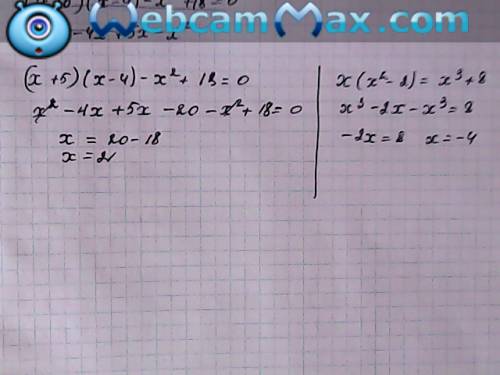 WebcamMax.com
(x+5)(x-4)-x²+18=0
x²-4x+5x-20-x²+18=0
x = 20-18
x = 2
x(x²-2)=x³+8
x³-2x-x³=8
-2x=8 x=-4